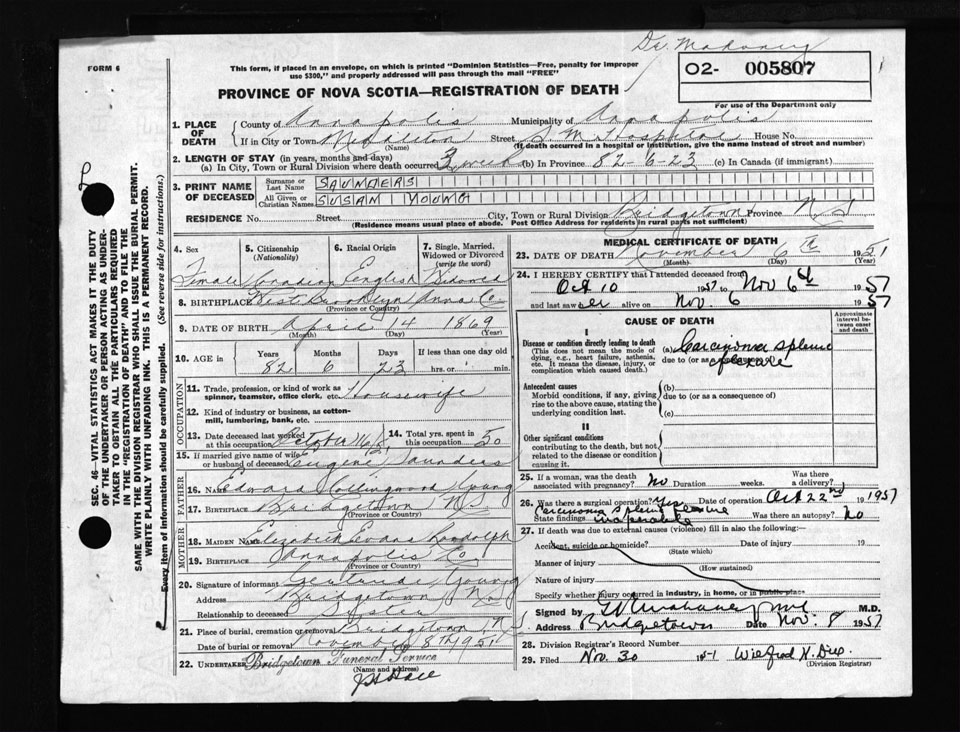 Dr. Mahaney
FORM 6
This form, if placed in an envelope, on which is printed "Dominion Statistics—Free, penalty for improper
use $300," and properly addressed will pass through the mail "FREE"
02- 005807
For use of the Department only
PROVINCE OF NOVA SCOTIA—REGISTRATION OF DEATH
1. PLACE OF DEATH
County of Annapolis Municipality of Annapolis
If in City or Town Middleton Street S. M. Hospital House No.
(Name) (If death occurred in a hospital or institution, give the name instead of street and number)
2. LENGTH OF STAY (in years, months and days)
(a) In City, Town or Rural Division where death occurred 3 weeks (b) In Province 82-6-23 (c) In Canada (if immigrant)
3. PRINT NAME OF DECEASED
Surname or Last Name SAUNDERS
All Given or Christian Names SUSAN YOUNG
RESIDENCE No. Street City, Town or Rural Division Bridgetown Province N.S
(Residence means usual place of abode. Post Office Address for residents in rural parts not sufficient)
4. Sex
Female
5. Citizenship (Nationality)
Canadian
6. Racial Origin
English
7. Single, Married, Widowed or Divorced (write the word)
Widowed
8. BIRTHPLACE West Brooklyn Anna Co
(Province or Country)
9. DATE OF BIRTH April 14 1869
(Month) (Day) (Year)
10. AGE in Years Months Days If less than one day old
82 6 23 hrs. or min.
OCCUPATION
11. Trade, profession, or kind of work as spinner, teamster, office clerk, etc. Housewife
12. Kind of industry or business, as cotton-mill, lumbering, bank, etc.
13. Date deceased last worked at this occupation October 16/
14. Total yrs. spent in this occupation 50
15. If married give name of wife or husband of deceased Eugene Saunders
FATHER
16. NAME Edward Collingwood Young
17. BIRTHPLACE Bridgetown N.S
(Province or Country)
MOTHER
18. MAIDEN NAME Elizabeth Evans Randolph
19. BIRTHPLACE Annapolis Co
(Province or Country)
20. Signature of informant Gertrude Young
Address Bridgetown N.S
Relationship to deceased Sister
21. Place of burial, cremation or removal Bridgetown N.S.
November 8TH 1951
22. UNDERTAKER Bridgetown Funeral Service
(Name and address)
MEDICAL CERTIFICATE OF DEATH
23. DATE OF DEATH November 6th 1951
(Month) (Day) (Year)
24. I HEREBY CERTIFY that I attended deceased from
Oct 10 1951 to Nov 6th 1951
and last saw her alive on Nov. 6 1951
CAUSE OF DEATH
Approximate interval between onset and death
I
Disease or condition directly leading to death
(This does not mean the mode of dying, e.g., heart failure, asthenia, etc. It means the disease, injury, or complication which caused death.)
(a) Carcinoma splenic flexure
due to (or as a consequence of)
Antecedent causes
Morbid conditions, if any, giving rise to the above cause, stating the underlying condition last.
(b)
due to (or as a consequence of)
(c)
II
Other significant conditions
contributing to the death, but not related to the disease or condition causing it.
25. If a woman, was the death associated with pregnancy? No Duration weeks. Was there a delivery?
26. Was there a surgical operation? Yes Date of operation Oct 22nd 1951
State findings Carcinoma splenic flexure inoperable Was there an autopsy? No
27. If death was due to external causes (violence) fill in also the following:—
Accident, suicide or homicide? Date of injury 19
(State which)
Manner of injury
(How sustained)
Nature of injury
Specify whether injury occurred in industry, in home, or in public place
Signed by M.D.
Address Bridgetown Date Nov. 8 1951
28. Division Registrar's Record Number
29. Filed Nov. 30 1951
(Division Registrar)
SEC. 46—VITAL STATISTICS ACT MAKES IT THE DUTY
OF THE UNDERTAKER OR PERSON ACTING AS UNDER-
TAKER TO OBTAIN ALL THE PARTICULARS REQUIRED
IN THE "REGISTRATION OF DEATH" AND TO FILE THE
SAME WITH THE DIVISION REGISTRAR WHO SHALL ISSUE THE BURIAL PERMIT.
WRITE PLAINLY WITH UNFADING INK. THIS IS A PERMANENT RECORD.
Every item of information should be carefully supplied. (See reverse side for instructions.)